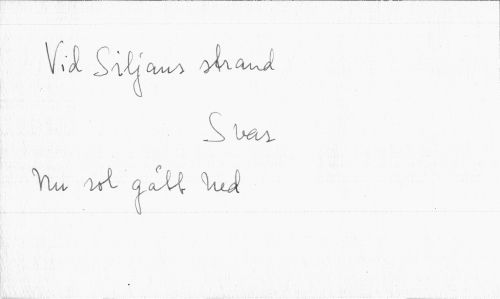 Vid Siljans strand
Svar
Nu sol gått ned